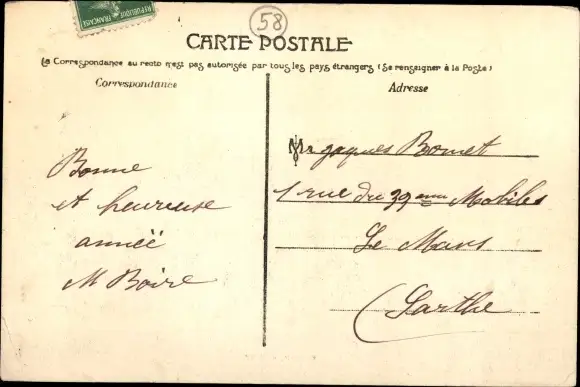 REPUBLIQUE FRANÇAISE
58
CARTE POSTALE
La Correspondance au recto n'est pas autorisée par tous les pays étrangers (Se renseigner à la Poste)
Correspondance
Adresse
Bonne
et heureuse
année
M Boire
Mr Jaques Bomet
1 rue du 39eme Mobiles
Le Mans
Sarthe